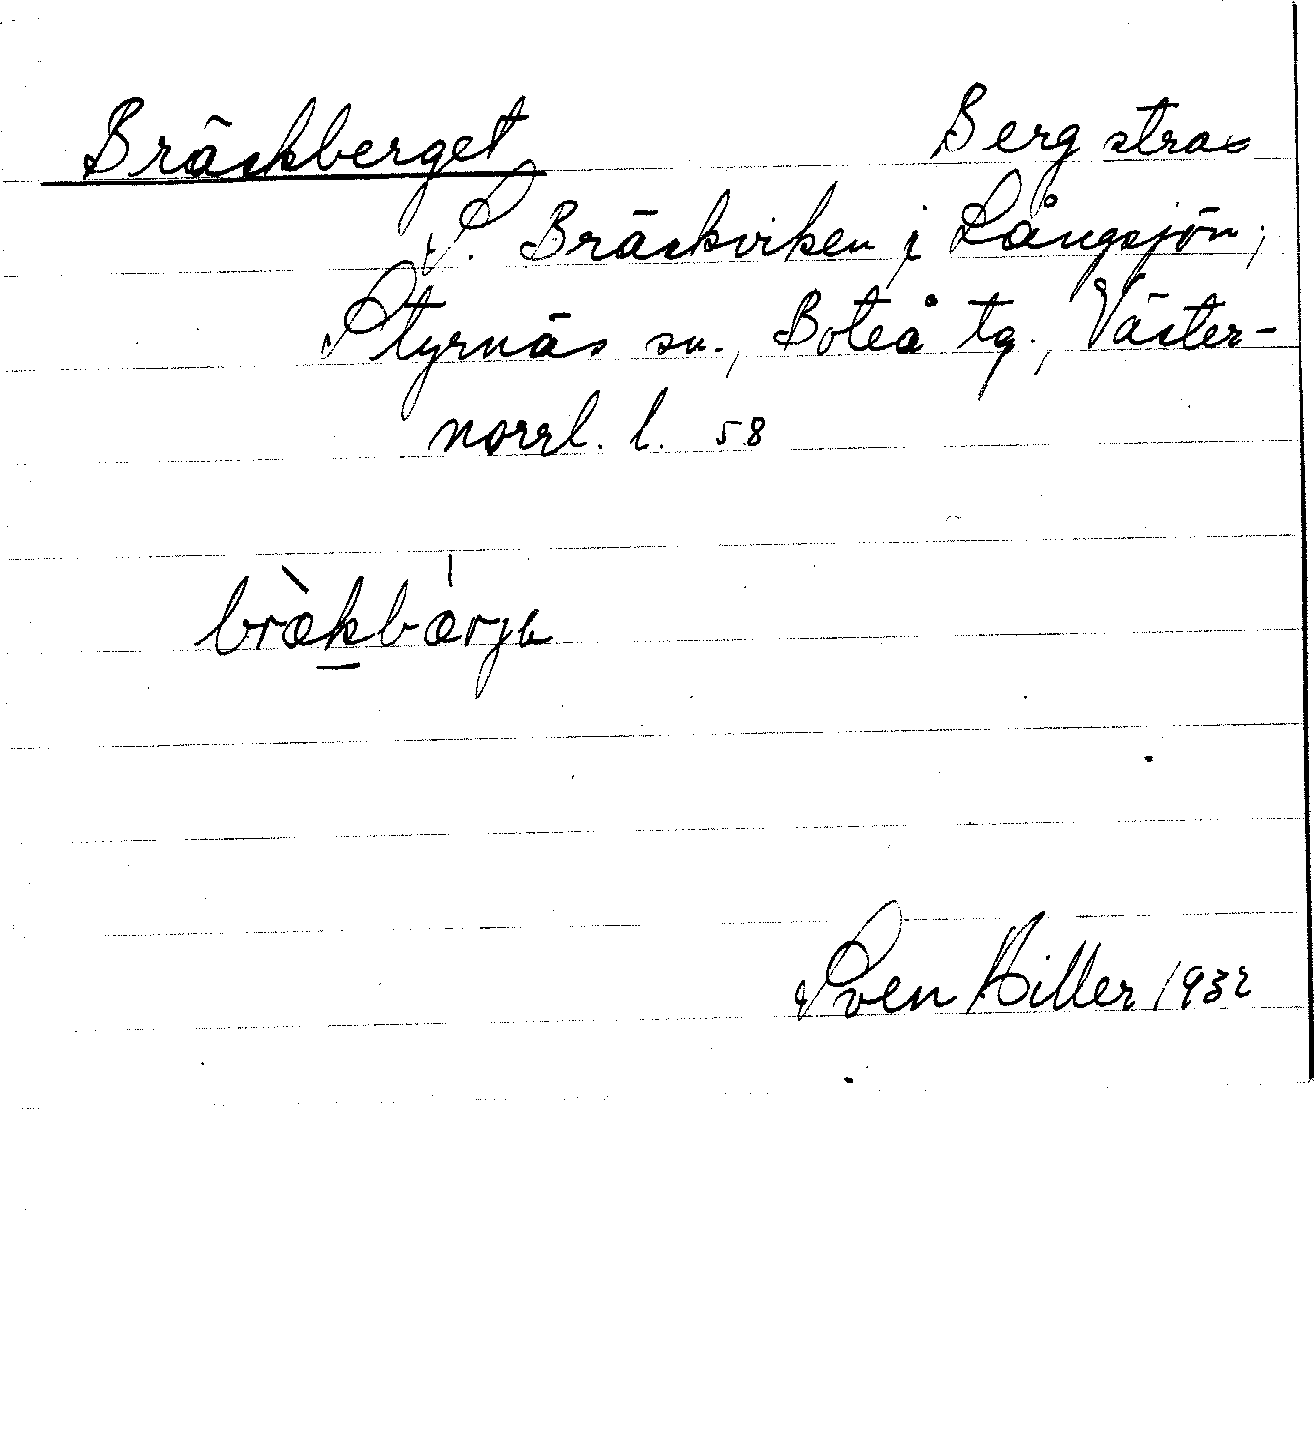 Bräckberget Berg strax
S. Bräckviken i Långsjön,
Styrnäs sn., Boteå tg., Väster-
norrl. l. 58
bræ̀kbærjə
Sven Hiller 1932